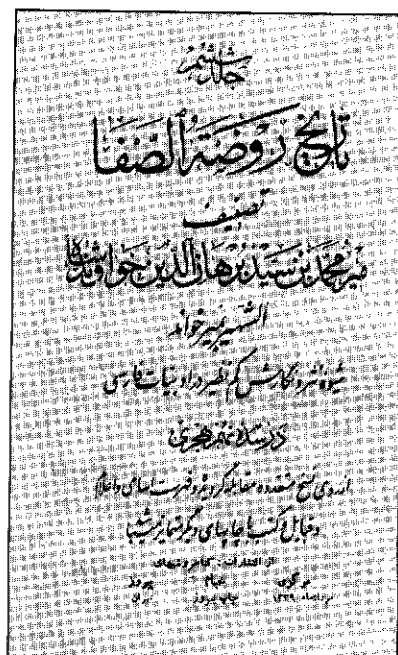 جلد ششم
تاریخ روضة الصفا
تصنیف
میر محمد بن سید برهان الدین خواوند شاه
الشهیر بمیر خواند
شیوه نثر و نگارش کم نظیر در ادبیات فارسی
در سده نهم هجری
از روی نسخ متعدده مقابله گردیده و فهرست اسامی و اعلام
و قبایل و کتب با چاپهای دیگر متمایز میباشد
از انتشارات کتابفروشیهای
مرکزی خیام پیروز